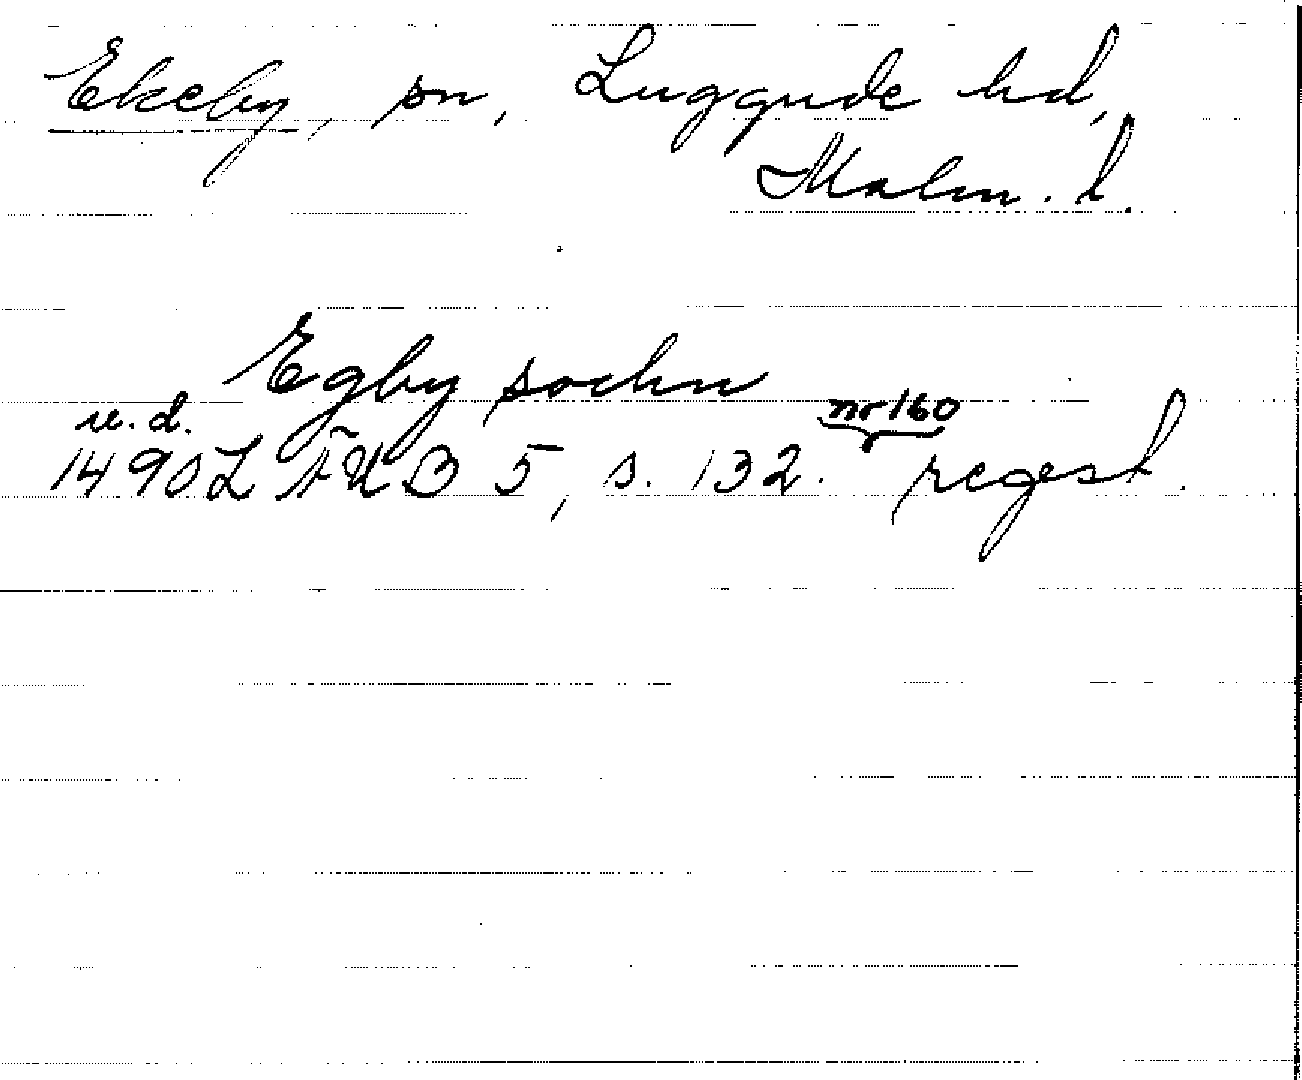 Ekeby, sn, Luggude hd,
Malm. l.
Egby sochn
u. d. nr 160
1490 LÄUB 5, s. 132. regest.